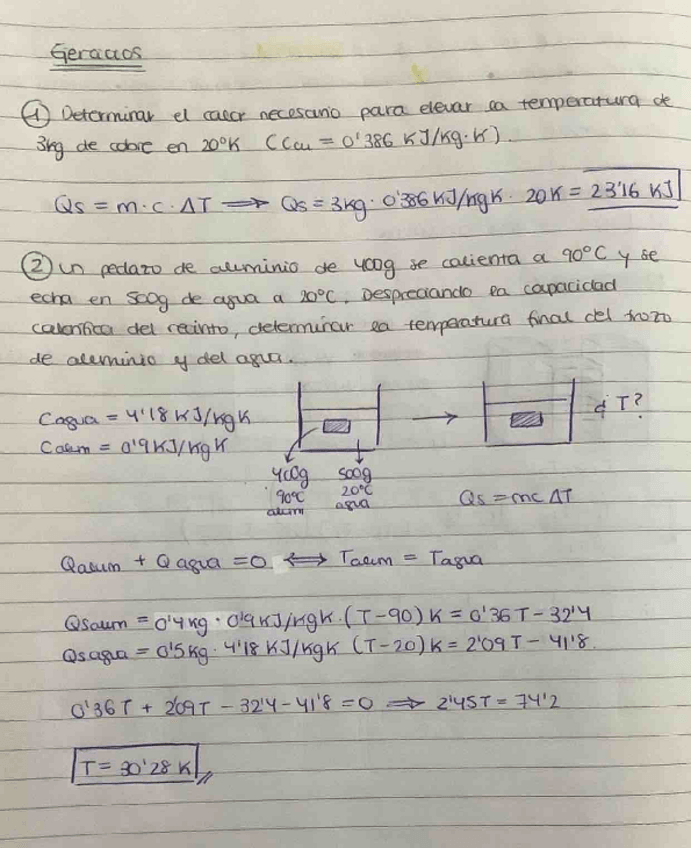 Ejercicios
① Determinar el calor necesario para elevar la temperatura de
3kg de cobre en 20°K (Ccu = 0'386 KJ/kg·K).
Qs = m·c·ΔT ⟹ Qs = 3kg·0'386KJ/kgK·20K = 23'16 KJ
② Un pedazo de aluminio de 400g se calienta a 90°C y se
echa en 500g de agua a 20°C. Despreciando la capacidad
calorífica del recinto, determinar la temperatura final del trozo
de aluminio y del agua.
Cagua = 4'18 KJ/kgK
Calum = 0'9KJ/kgK
¿T?
400g 500g
90°C 20°C
alum agua
Qs = mcΔT
Qalum + Qagua = 0 ⟺ Talum = Tagua
Qsalum = 0'4kg·0'9KJ/kgK·(T-90)K = 0'36T-32'4
Qsagua = 0'5kg·4'18KJ/kgK (T-20)K = 2'09T-41'8.
0'36T + 2'09T - 32'4 - 41'8 = 0 ⟹ 2'45T = 74'2
T = 30'28 K